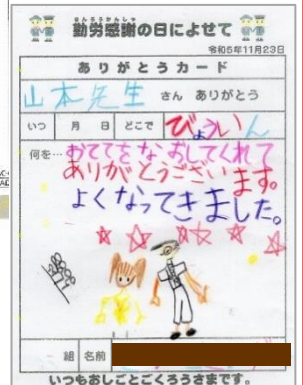 きんろうかんしゃ
勤労感謝の日によせて
令和5年11月23日
ありがとうカード
山本先生 さん ありがとう
いつ 月 日 どこで びょういん
何を… おててをなおしてくれて
ありがとうございます。
よくなってきました。
組 名前
いつもおしごとごくろうさまです。